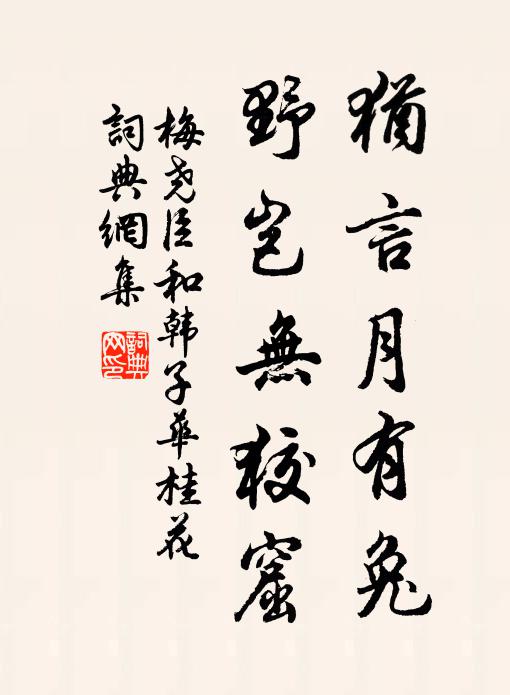 猶言月有兔
野岂無狡窟
梅尧臣和韩子華桂花
詞典網集
詞典网印